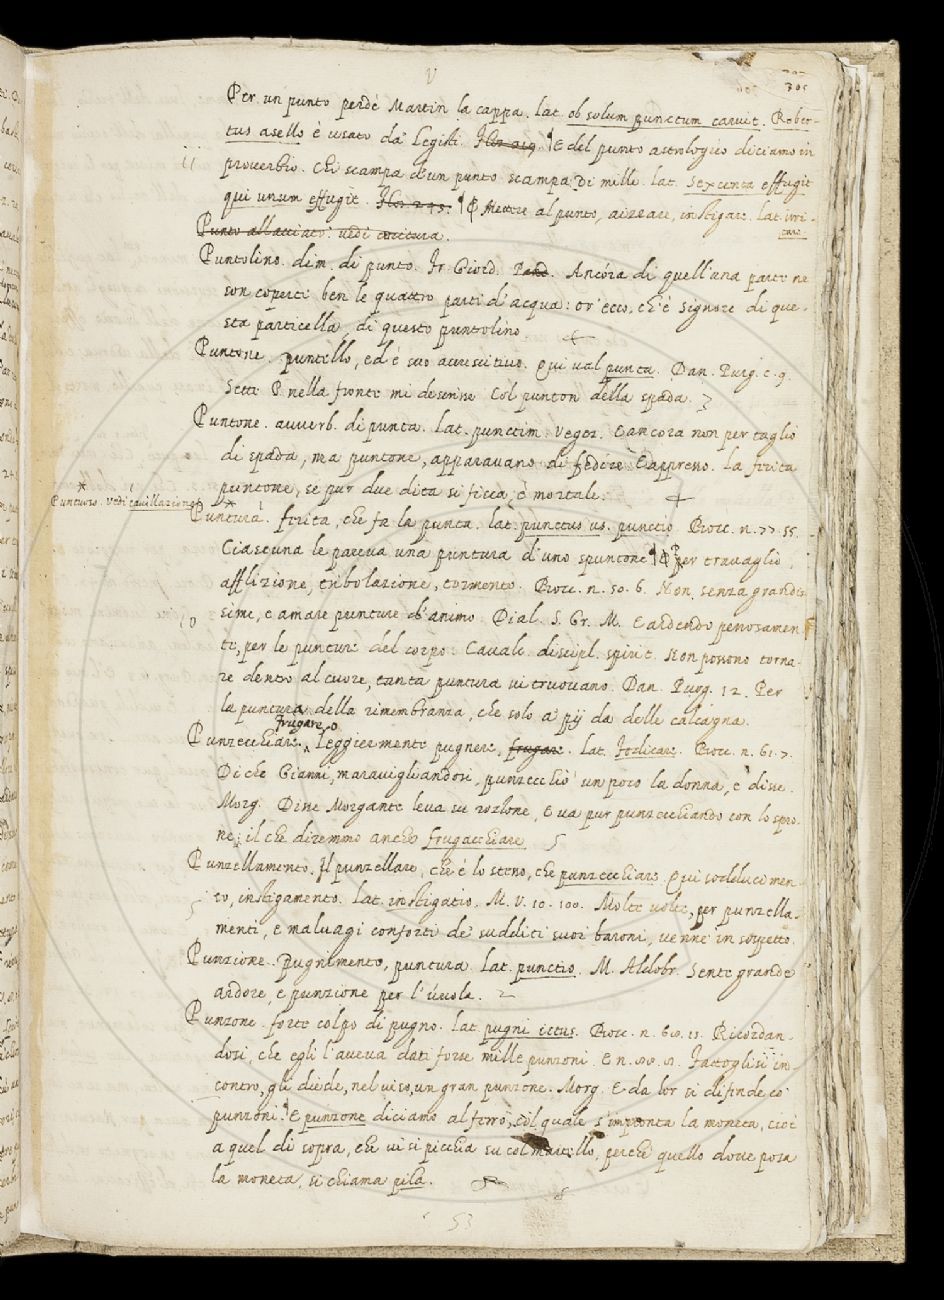 V
305
Per un punto perdè Martin la cappa. lat. ob solum punctum caruit. Rober-
tus asello è usato da' Legisti. Flos 219. ¶ E del punto astrologico diciamo in
proverbio. Chi scampa d'un punto scampa di mille. lat. Sexcenta effugit
qui unum effugit. Flos 245. ¶ Mettere al punto, aizzare, instigare. lat. irri-
tare.
Punto allacciato: vedi cucitura.
Puntolino. dim. di punto. Fr. Giord. Pand. Ancóra di quell'una parte ne
son coperti ben le quattro parti d'acqua: or ecco, ch'è signore di que-
sta particella, di questo puntolino
Puntone. puntello, ed è suo accrescitivo. Qui val punta. Dan. Purg. c. 9.
Sette P nella fronte mi descrisse Col punton della spada.
Puntone. avverb. di punta. lat. punctim. Vegez. E ancora non per taglio
di spada, ma puntone, apparavano di fedére E appresso. La ferita
puntone, se pur due dita si ficca, è mortale.
Puntuoso. vedi cavillazione
Puntura. ferita, che fa la punta. lat. punctus us. punctio Bocc. n. 77. 55.
Ciascuna le pareva una puntura d'uno spuntone ¶ per travaglio,
afflizione, tribolazione, tormento. Bocc. n. 50. 6. Non senza grandis-
sime, e amare punture d'animo. Dial. S. Gr. M. E ardendo penosamen-
te, per le punture del corpo. Cavalc. discipl. spirit. Non possono torna-
re dentro al cuore, tanta puntura vi truovano. Dan. Purg. 12. Per
la puntura della rimembranza, che solo a' pij dà delle calcagna.
frugare, o
Punzecchiare. Leggiermente pugnere, frugare. lat. fodicare. Bocc. n. 61. 7.
Di che Gianni, maravigliandosi, punzecchiò un poco la donna, e disse.
Morg. Disse Morgante leva su rozzone, E va pur punzecchiando con lo spro-
ne; il che diremmo anche frugacchiare
Punzellamento. Il punzellare, che è lo stesso, che punzecchiare. Qui sodducimen-
to, instigamento. Lat. instigatio. M. V. 10. 100. Molte volte, per punzella-
menti, e malvagi conforti de' sudditi suoi baroni, venne in sospetto.
Punzione. Pugnimento, puntura. lat. punctio. M. Aldobr. Sente grande
ardore, e punzione per l'úvola.
Punzone. forte colpo di pugno. lat. pugni ictus. Bocc. n. 15. Ricordan-
dosi, che egli l'aveva dati forse mille punzoni. E n. Fattoglisi in-
contro, gli diede, nel viso, un gran punzone. Morg. E da lor si difende co'
punzoni. ¶ E punzone diciamo al ferro, col quale s'impronta la moneta, cioè
a quel di sopra, che vi si picchia su col martello, perchè quello dove posa
la moneta, si chiama pila.
53